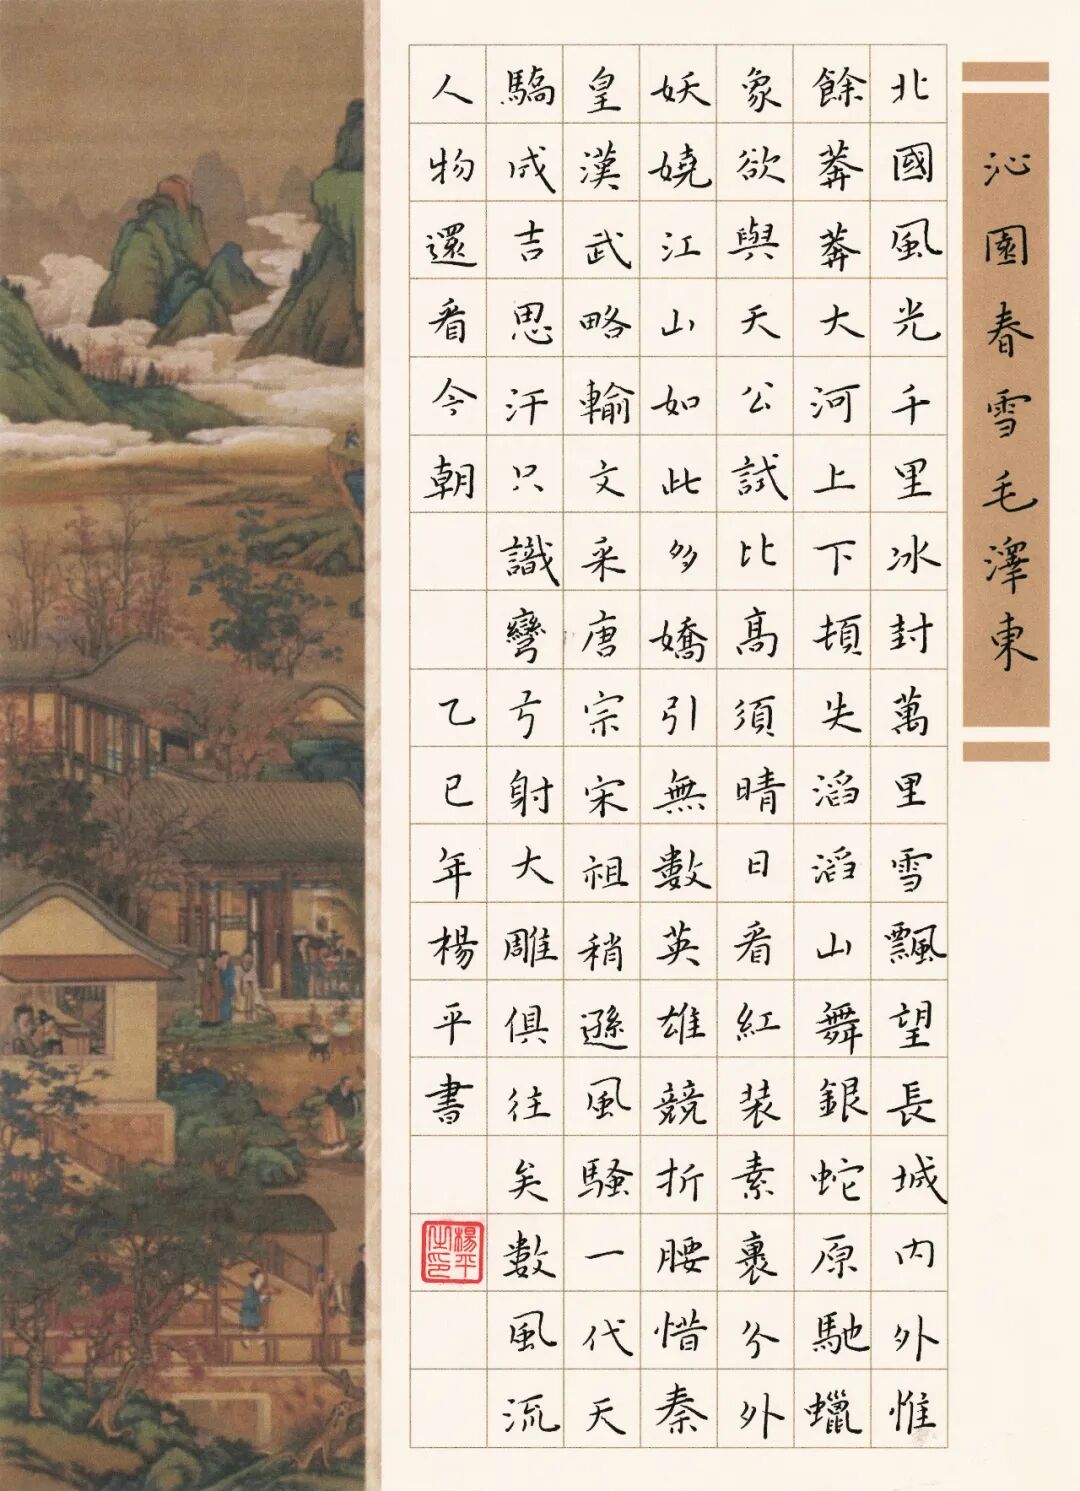 沁園春雪毛澤東
北國風光千里冰封萬里雪飄望長城内外惟
餘莽莽大河上下頓失滔滔山舞銀蛇原馳蠟
象欲與天公試比高須晴日看紅装素裹分外
妖嬈江山如此多嬌引無數英雄競折腰惜秦
皇漢武略輸文采唐宗宋祖稍遜風騷一代天
驕成吉思汗只識彎弓射大雕俱往矣數風流
人物還看今朝 乙巳年楊平書
楊平之印